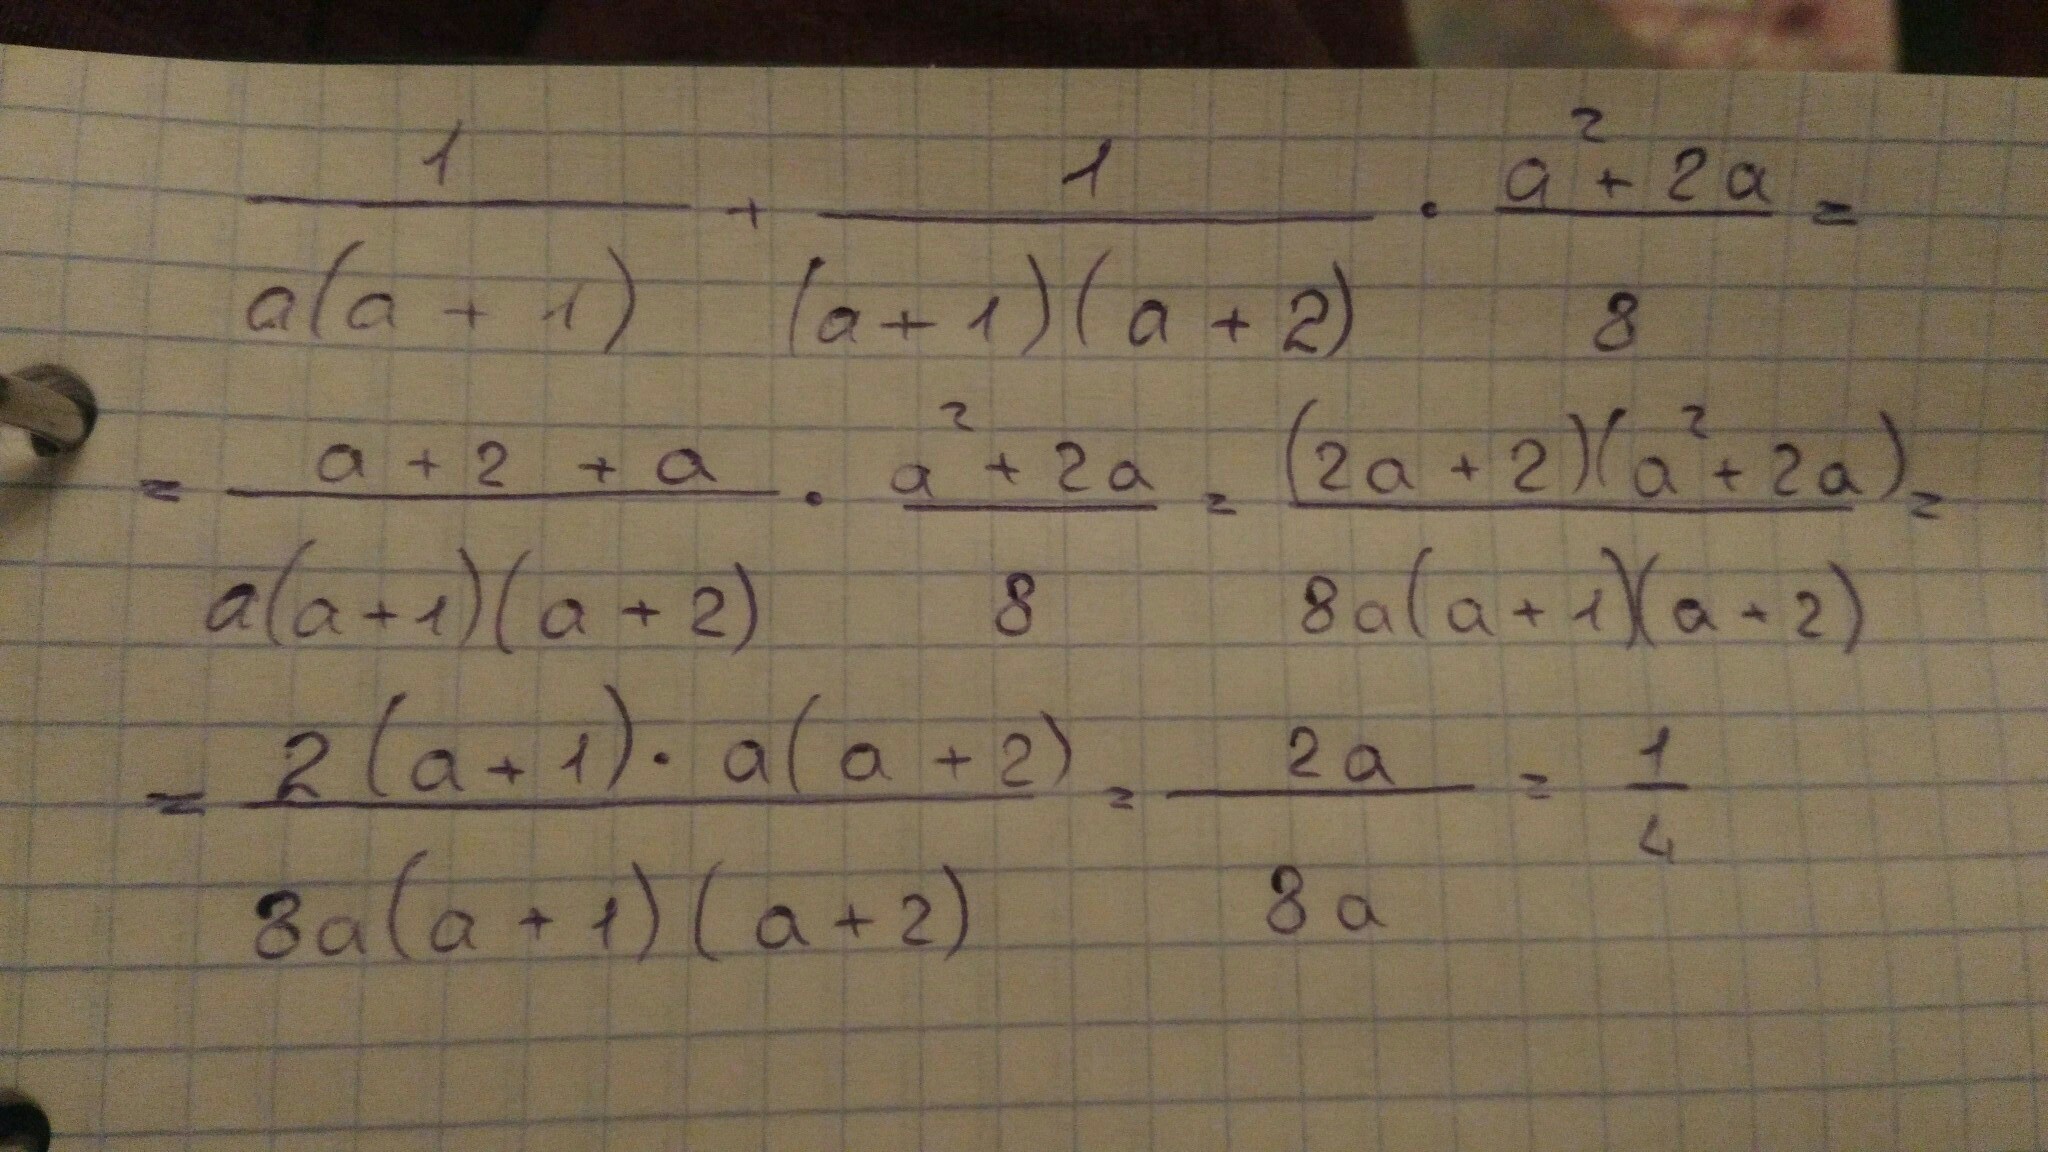 1/(a(a + 1)) + 1/((a + 1)(a + 2)) · (a² + 2a)/8 =
= (a + 2 + a)/(a(a + 1)(a + 2)) · (a² + 2a)/8 = ((2a + 2)(a² + 2a))/(8a(a + 1)(a + 2)) =
= (2(a + 1) · a(a + 2))/(8a(a + 1)(a + 2)) = 2a/8a = 1/4